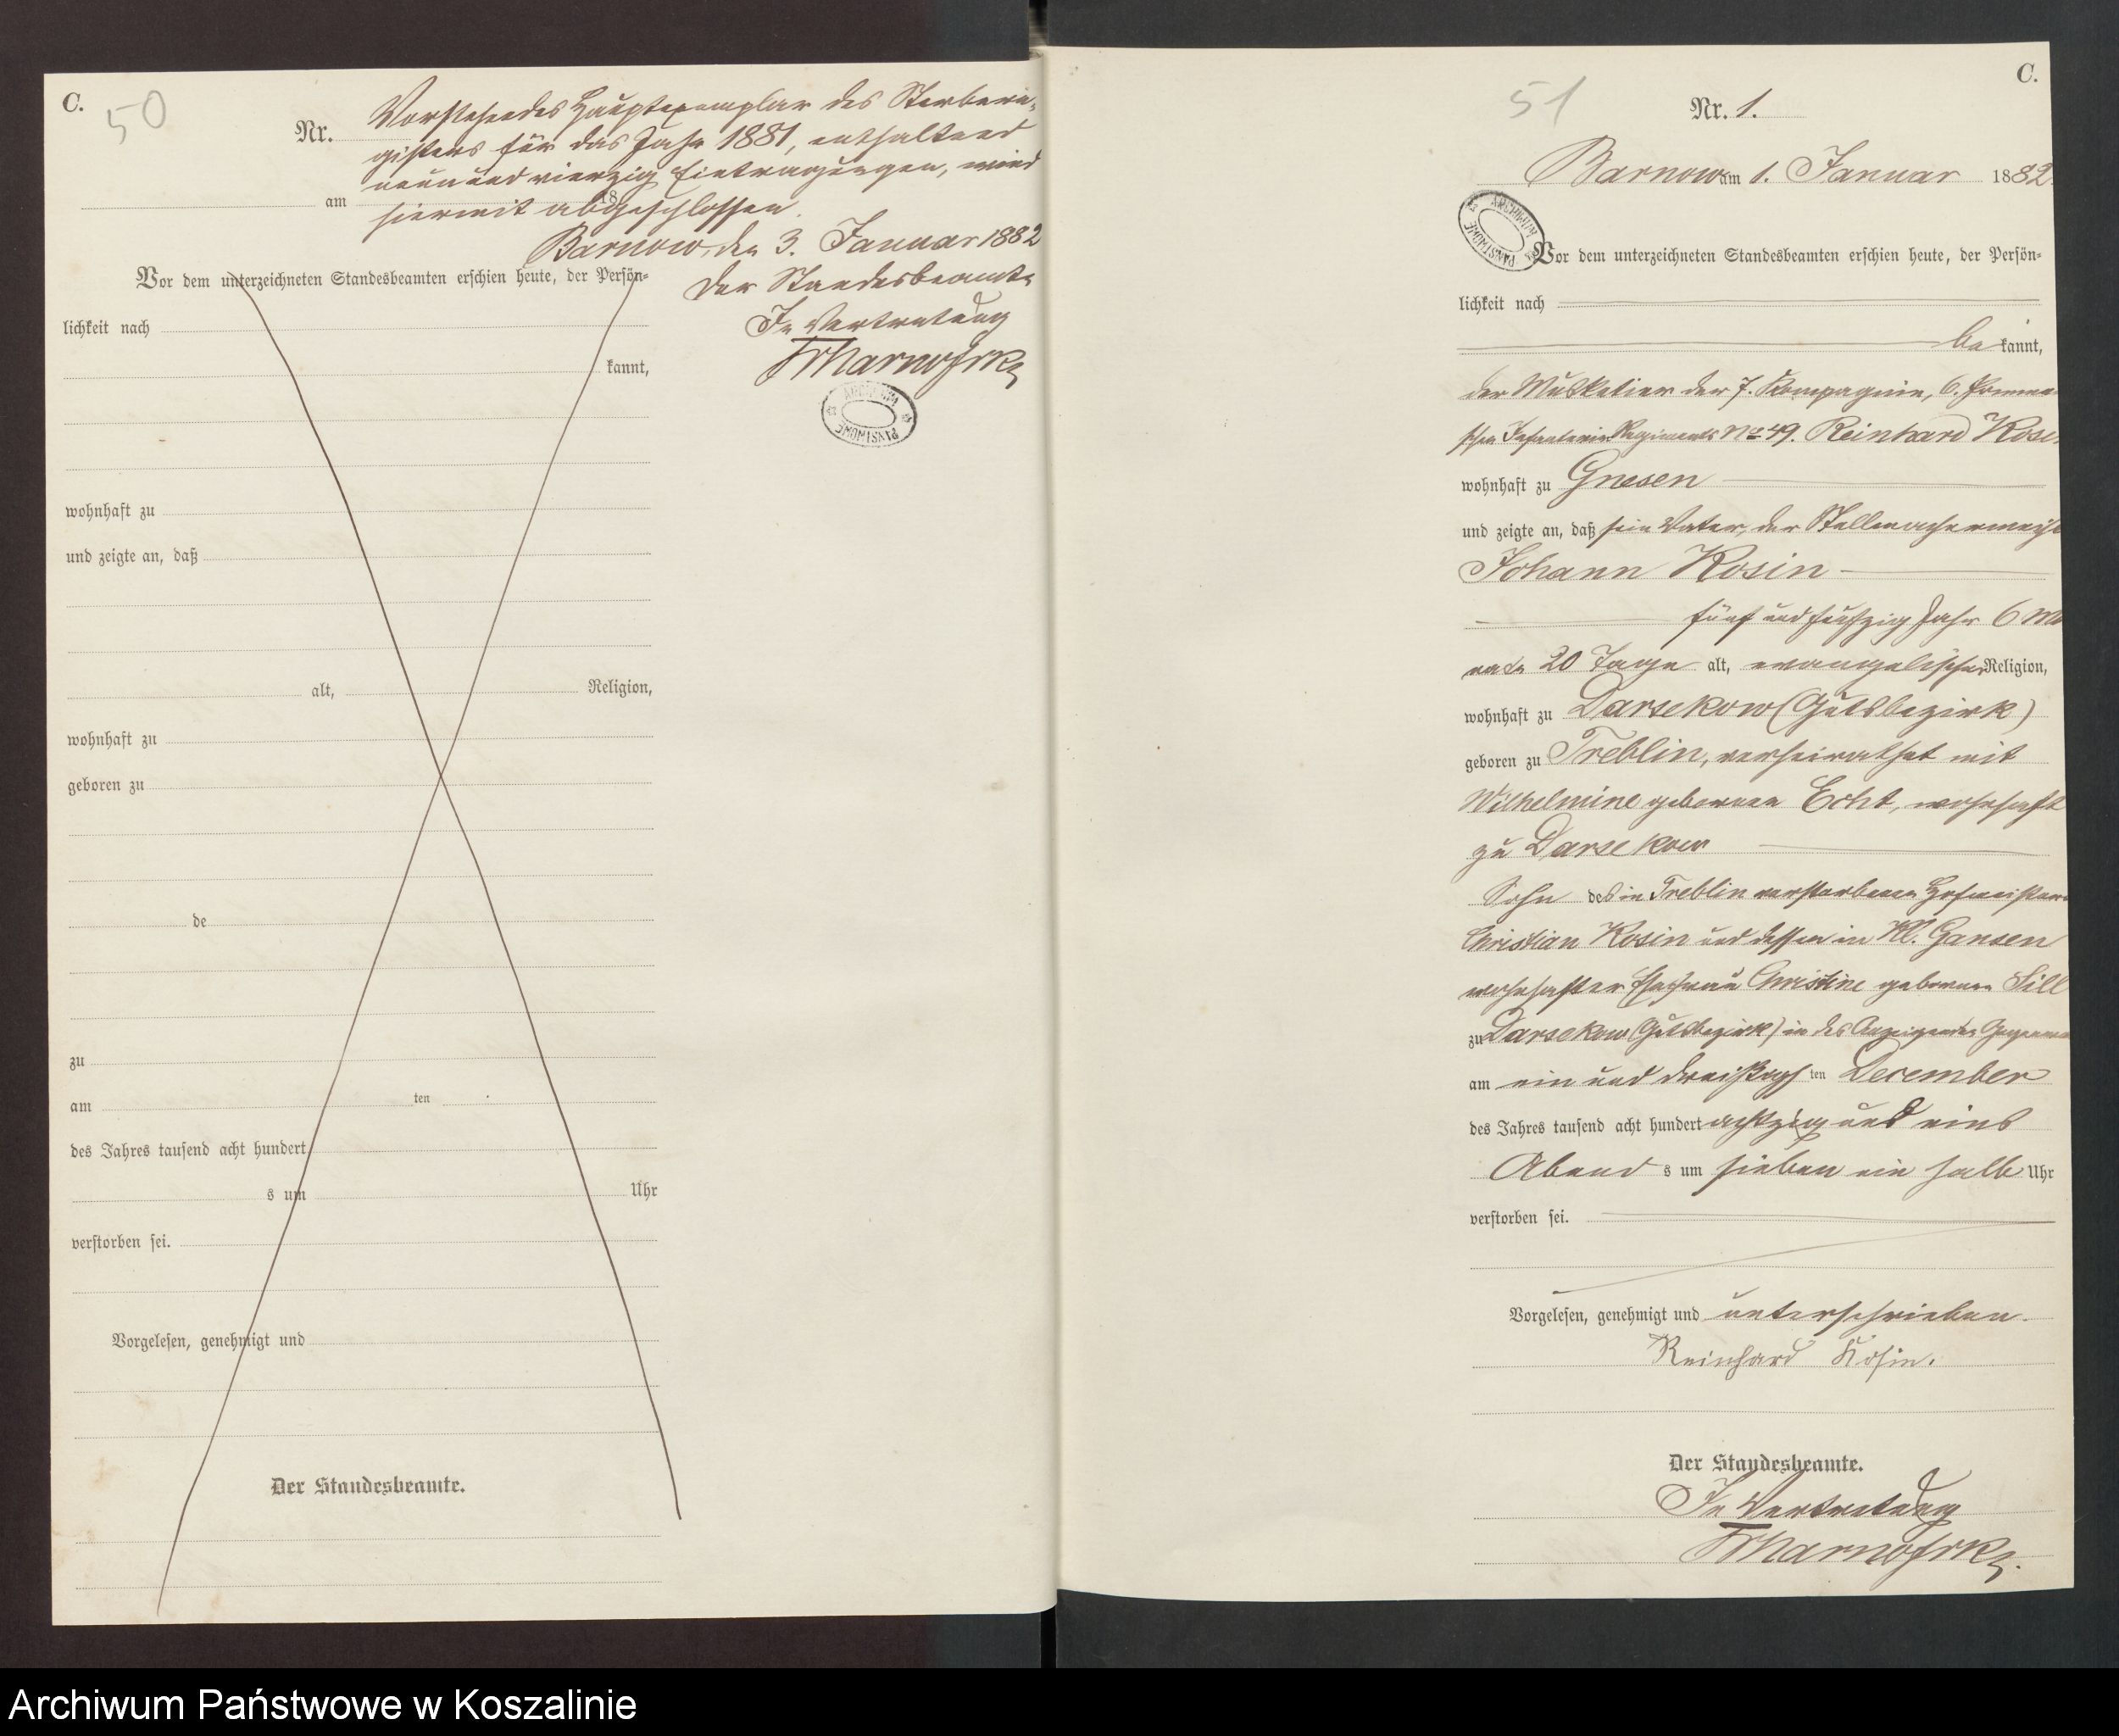 C.
50
Nr.
Vorstehendes Hauptexemplar des Sterbere-
gisters für das Jahr 1881, enthaltend
neunundvierzig Eintragungen, wird
am 18
hiermit abgeschlossen.
Barnow, den 3. Januar 1882
Der Standesbeamte
In Vertretung
ARCHIWUM PAŃSTWOWE
Vor dem unterzeichneten Standesbeamten erschien heute, der Persön-
lichkeit nach
kannt,
wohnhaft zu
und zeigte an, daß
alt, Religion,
wohnhaft zu
geboren zu
de
zu
am ten
des Jahres tausend acht hundert
s um Uhr
verstorben sei.
Vorgelesen, genehmigt und
Der Standesbeamte.
C.
51
Nr. 1.
Barnow am 1. Januar 1882.
ARCHIWUM PAŃSTWOWE
Vor dem unterzeichneten Standesbeamten erschien heute, der Persön-
lichkeit nach
be kannt,
der Musketier der 7. Kompagnie, 6. Pomme
schen Infanterie Regiments No 49. Reinhard Kosi
wohnhaft zu Gnesen
und zeigte an, daß sein Vater, der
Johann Kosin
fünf und fünfzig Jahr 6 Mo
nate 20 Tage alt, evangelischer Religion,
wohnhaft zu Darsekow (Gutsbezirk)
geboren zu Treblin, verheirathet mit
Wilhelmine geborenen Echt, wohnhaft
zu Darsekow
Sohn des in Treblin verstorbenen Hofmeisters
Christian Kosin und dessen in Kl. Gansen
wohnhafter Ehefrau Christine geborenen Sill
zu Darsekow (Gutsbezirk) in des Anzeigenden Gegenwa
am ein und dreißigs ten December
des Jahres tausend acht hundert achtzig und eins
Abend s um sieben ein halb Uhr
verstorben sei.
Vorgelesen, genehmigt und unterschrieben.
Reinhard Kosin.
Der Standesbeamte.
In Vertretung
Archiwum Państwowe w Koszalinie